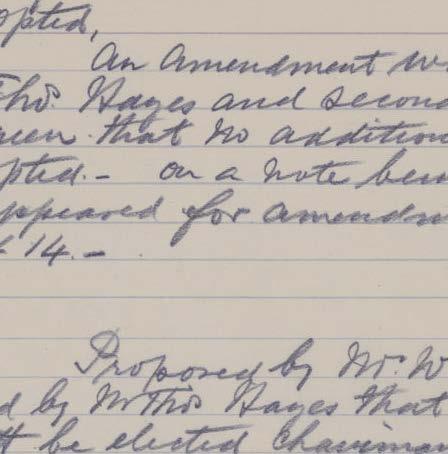 opted,
An Amendment w
Thos. Hayes and secon
ueen that no addition
pted. - on a vote bein
ppeared for amendm
t 14. -
Proposed by Mr. W
d by Mr Thos Hayes that
tt be elected Chairman